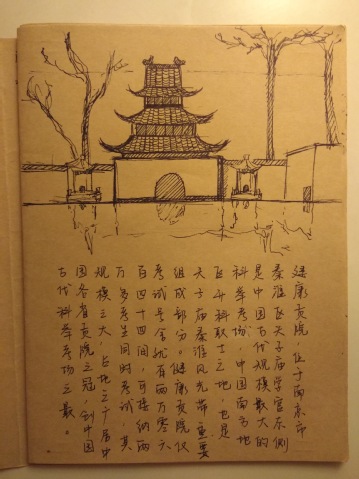 建康贡院，位于南京市
秦淮区夫子庙学宫东侧
是中国古代规模最大的
科举考场，中国南方地
区开科取士之地，也是
夫子庙秦淮风光带重要
组成部分。建康贡院仅
考试号舍就有两万零六
百四十四间，可接纳两
万多考生同时考试，其
规模之大、占地之广居中
国各省贡院之冠，创中国
古代科举考场之最。